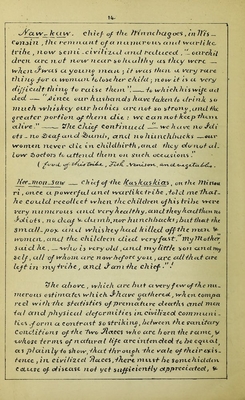 14
Naw-kaw. chief of the Winnebagoes, in Wis-
consin, the remnant of a numerous and warlike
tribe, now semi-civilized and reduced. "our chil
dren are not now near so healthy as they were
when I was a young man; it was then a very rare
thing for a woman to lose her child; now it is a very
difficult thing to raise them" — to which his wife ad
ded — "since our husbands have taken to drink so
much whiskey our babies are not so strong, and the
greater portion of them die; we cannot keep them
alive." — The Chief continued — "we have no Idi
ots — no Deaf and Dumb, and no hunchbacks — our
women never die in childbirth, and they do not al-
low Doctors to attend them on such occasions."
(food of this tribe, Fish, Venison, and vegetables.
Kee-mon-saw — chief of the Kaskaskias, on the Missou
ri, once a powerful and warlike tribe, told me that
he could recollect when the children of his tribe were
very numerous and very healthy, and they had then no
Idiots, no deaf & dumb, nor hunchbacks; but that the
small-pox and whiskey had killed off the men &
women, and the children died very fast. "My Mother
said he, — who is very old, and my little son and my
self, all of whom are now before you, are all that are
left in my tribe, and I am the chief."!
The above, which are but a very few of the nu-
merous estimates which I have gathered, when compa
red with the statistics of premature deaths and men
tal and physical deformities in civilized communi-
ties, form a contrast so striking, between the sanitary
conditions of the two Races who are born the same, &
whose terms of natural life are intended to be equal,
as plainly to show, that through the vale of their exis-
tence, in civilized Races, there must be some hidden
cause of disease not yet sufficiently appreciated, &